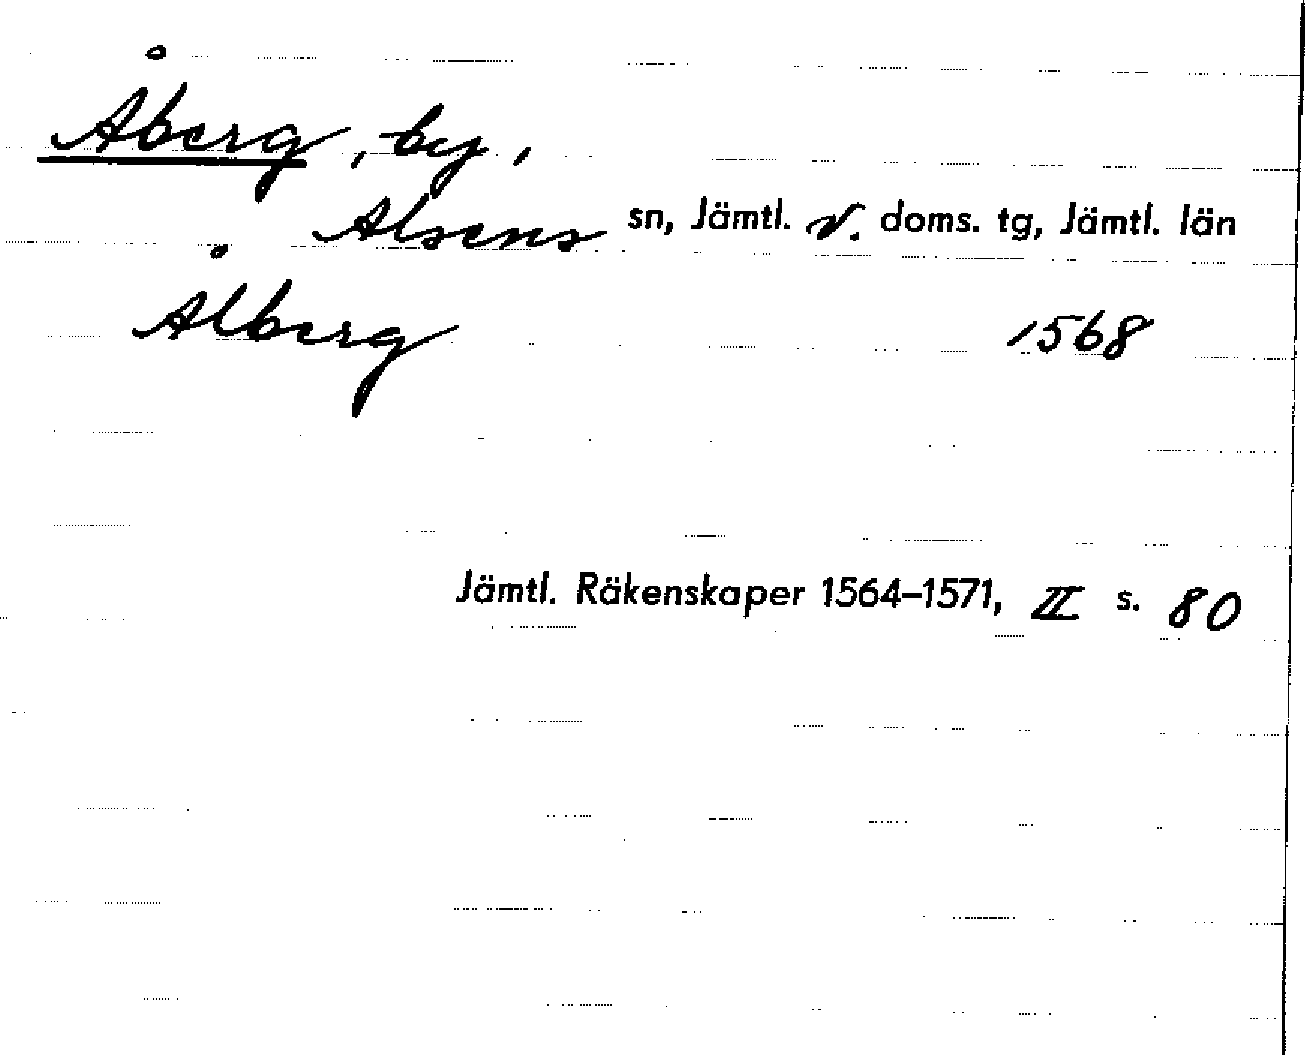 Åberg, by,
Alsens sn, Jämtl. v. doms. tg, Jämtl. län
Ålberg 1568
Jämtl. Räkenskaper 1564–1571, II s. 80